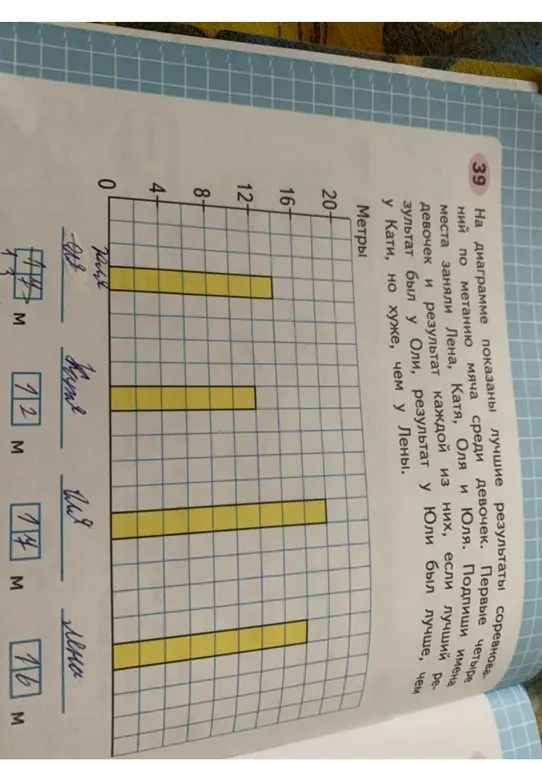 39 На диаграмме показаны лучшие результаты соревнова-
ний по метанию мяча среди девочек. Первые четыре
места заняли Лена, Катя, Оля и Юля. Подпиши имена
девочек и результат каждой из них, если лучший ре-
зультат был у Оли, результат у Юли был лучше, чем
у Кати, но хуже, чем у Лены.
Метры
20
16
12
8
4
0
м 12 м 17 м 16 м